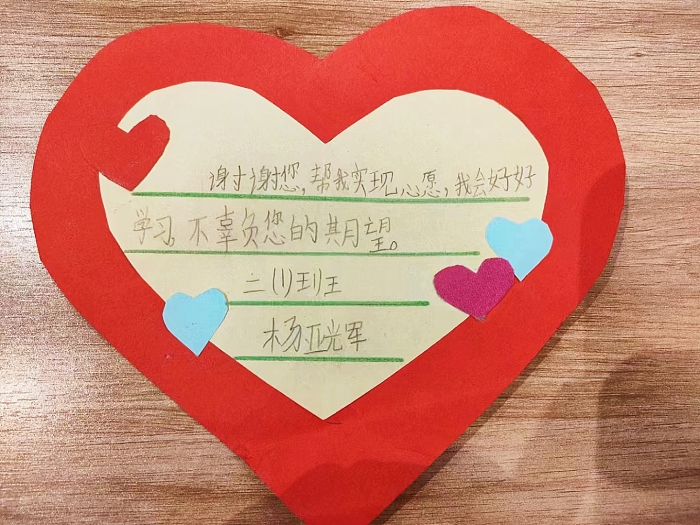 谢谢您,帮我实现心愿,我会好好
学习。不辜负您的期望。
二(1)班
杨亚光军